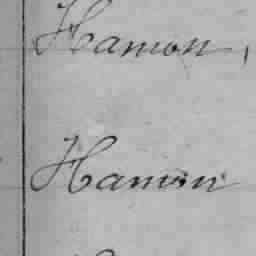 Hamon,
Hamon